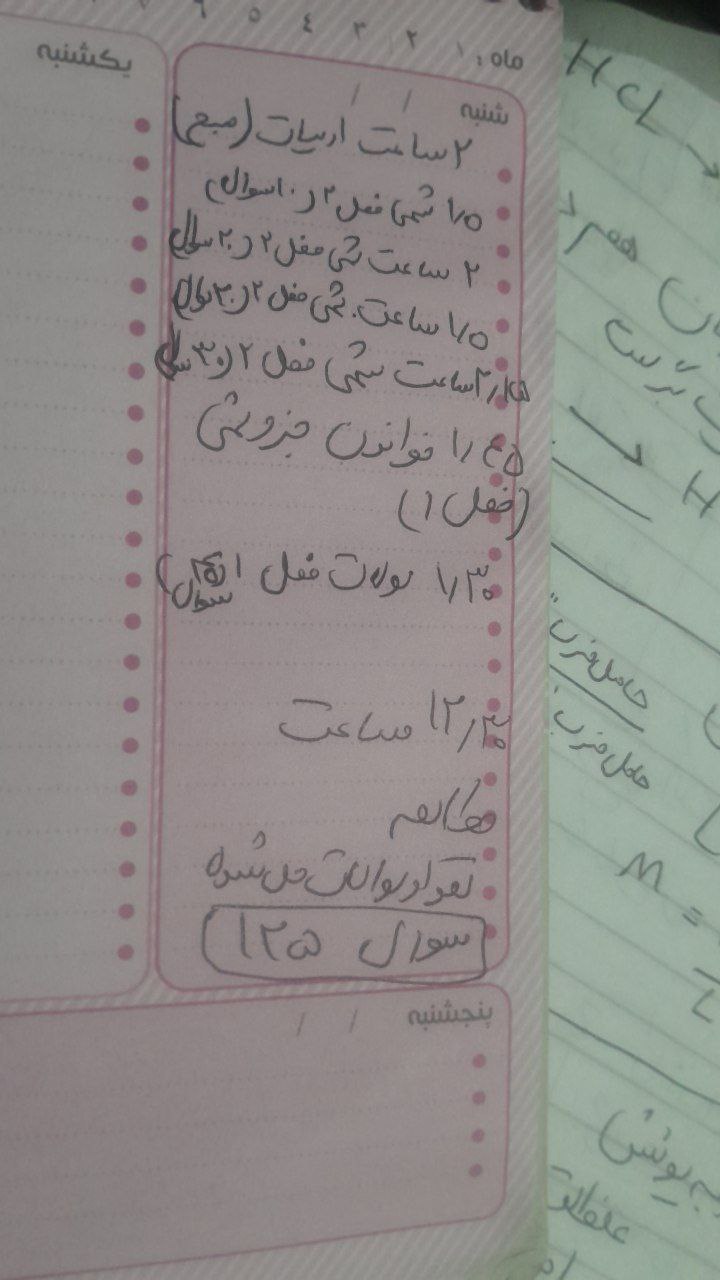 ماه: ۱ ۲ ۳ ٤ ٥ ٦
شنبه / /
۲ ساعت ادبیات (صبح)
۱/۵ شمی فصل ۲ (۱۰ سوال)
۲ ساعت شمی فصل ۲ (۲۰ سوال)
۱/۵ ساعت شمی فصل ۲ (۳۰ سوال)
ساعت شمی فصل ۲ (۳۰ سوال)
۱/۴۵ خواندن جزوشی
(فصل ۱)
۱/۳۰ سوالات فصل ۱ (سوال)
۱۲/۳۰ ساعت
مطالعه
تعداد سوالات حل شده
۱۲۵ سوال
پنجشنبه / /
یکشنبه
HCl →
هم
→ H
حاصلضرب
حاصلضرب
M =
L